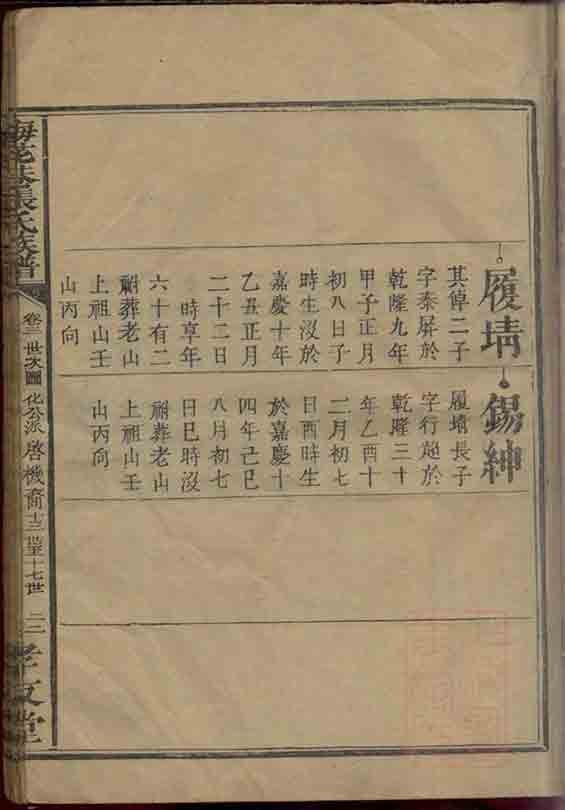 履墧
其倬二子
字泰屏於
乾隆九年
甲子正月
初八日子
時生沒於
嘉慶十年
乙丑正月
二十二日
時享年
六十有二
祔葬老山
上祖山壬
山丙向
錫紳
履墧長子
字行超於
乾隆三十
年乙酉十
二月初七
日酉時生
於嘉慶十
四年己巳
八月初七
日巳時沒
祔葬老山
上祖山壬
山丙向
梅花巷張氏族譜
卷三 世次圖 化公派 啓機裔十三世至十七世
孝友堂